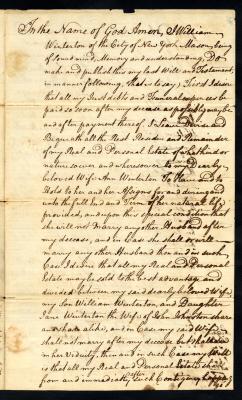 In the Name of God Amen, I William
Winterton of the City of New York Mason, being
of sound mind, Memory and understanding, Do
make and publish this my last Will and Testament,
in manner following, that is to say, First I desire
that all my Just debts and Funeral expences be
paid so soon after my decease as possibly may be
and after payment thereof I Give, Devise and
Bequeath all the Rest Residue and Remainder
of my Real and Personal Estate of whatkind or
nature soever and wheresoever to my Dearly
beloved Wife Ann Winterton To Have and to
Hold to her and her Assigns for and during and
unto the full End and Term of her natural life
provided, and upon this special condition that
she will not Marry any other Husband after
my decease, and in Case she shall or will
marry any other Husband then and in such
Case I do order that all my Real and Personal
Estate may be sold to the best advantage and
divided between my said dearly beloved Wife,
my Son William Winterton, and Daughter
Jane Winterton the Wife of John Johnston share
and share alike, and in Case my said Wife
shall not marry after my decease but shall die
in her Viduity, then and in such Case my Will
is that all my Real and Personal Estate shall
from and immediately after such Contingency